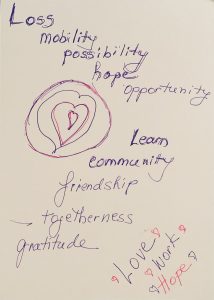 Loss
mobility
possibility
hope
opportunity
Learn
community
friendship
togetherness
gratitude
Love
Work
Hope